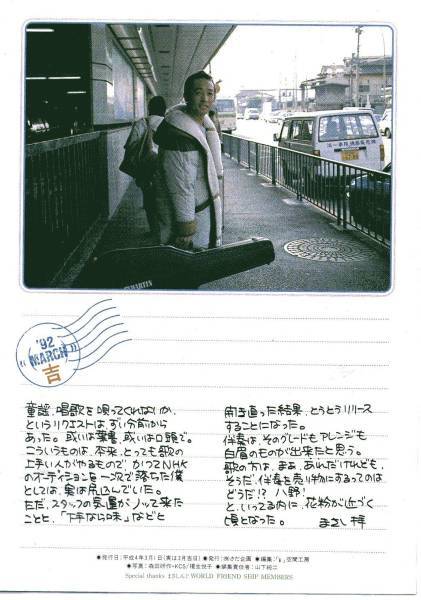 MARTIN
'92
MARCH
吉
童謡、唱歌を唄ってくれないか、
というリクエストは、ずい分前から
あった。或いは葉書、或いは口頭で。
こういうものは、本来、とっても歌の
上手い人がやるもので、かつてNHK
のオーディションを一次で落ちた僕
としては、実は尻込んでいた。
ただ、スタッフの気運がノッて来た
ことと、「下手なら味」などと
開き直った結果、とうとうリリース
することになった。
伴奏は、そのグレードもアレンジも
白眉のものが出来たと思う。
歌の方は、まぁ、あれだけれども、
そうだ、伴奏を売り物にするってのは
どうだ!? 八野!
と、いっている内に、花粉が近づく
頃となった。 まさし 拝
●発行日:平成4年3月1日(実は3月吉日)●発行:㈱さだ企画 ●編集:
空間工房
●写真:
●編集責任者:山下純二
Special thanks まさしんぐWORLD FRIEND SHIP MEMBERS